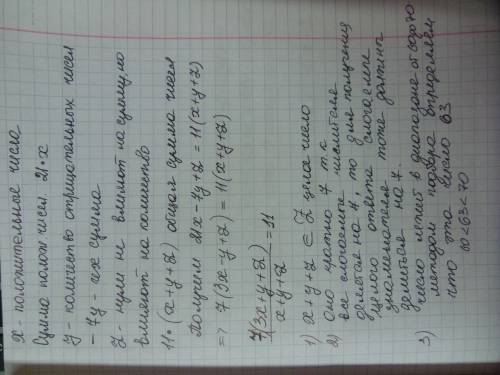 X - положительные числа
Сумма полож чисел 21·x
y - количество отрицательных чисел
- 7y - их сумма
Z - нули не влияют на сумму, но
влияют на количество
11·(x+y+z) общая сумма чисел
Получаем 21x-7y+z = 11(x+y+z)
=> 7(3x-y+z) = 11(x+y+z)
7(3x+y+z)
x+y+z
= 11
1) x+y+z ∈ Z целое число
2) оно кратно 7 т.к
все слогаемые числителя
делятся на 7, то для получения
целого ответа слогаемые
знаменателя тоже должны
делиться на 7.
3) число лежит в диапазоне от 60 до 70
методом подбора определяем
что это число 63
60<63<70